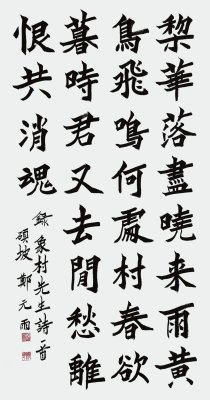 棃華落盡曉来雨黄
鳥飛鳴何處村春欲
暮時君又去閒愁離
恨共消魂
録象村先生詩一首
坡鄭元雨